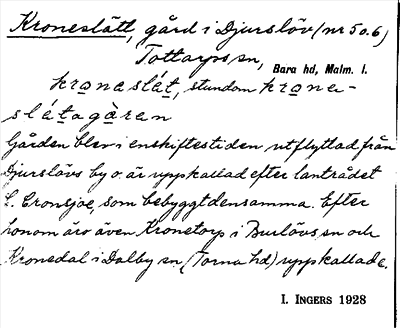 Kroneslätt, gård i Djurslöv (nr 5 o. 6)
Tottarps sn, Bara hd, Malm. l.
kronaslät, stundom krona-
slätagåren
Gården blev i enskiftestiden utflyttad från
Djurslövs by o. är uppkallad efter lantrådet
C. Cronsjoe, som bebyggt densamma. Efter
honom äro även Kronetorp i Burlövs sn och
Kronedal i Dalby sn (Torna hd) uppkallade.
I. INGERS 1928